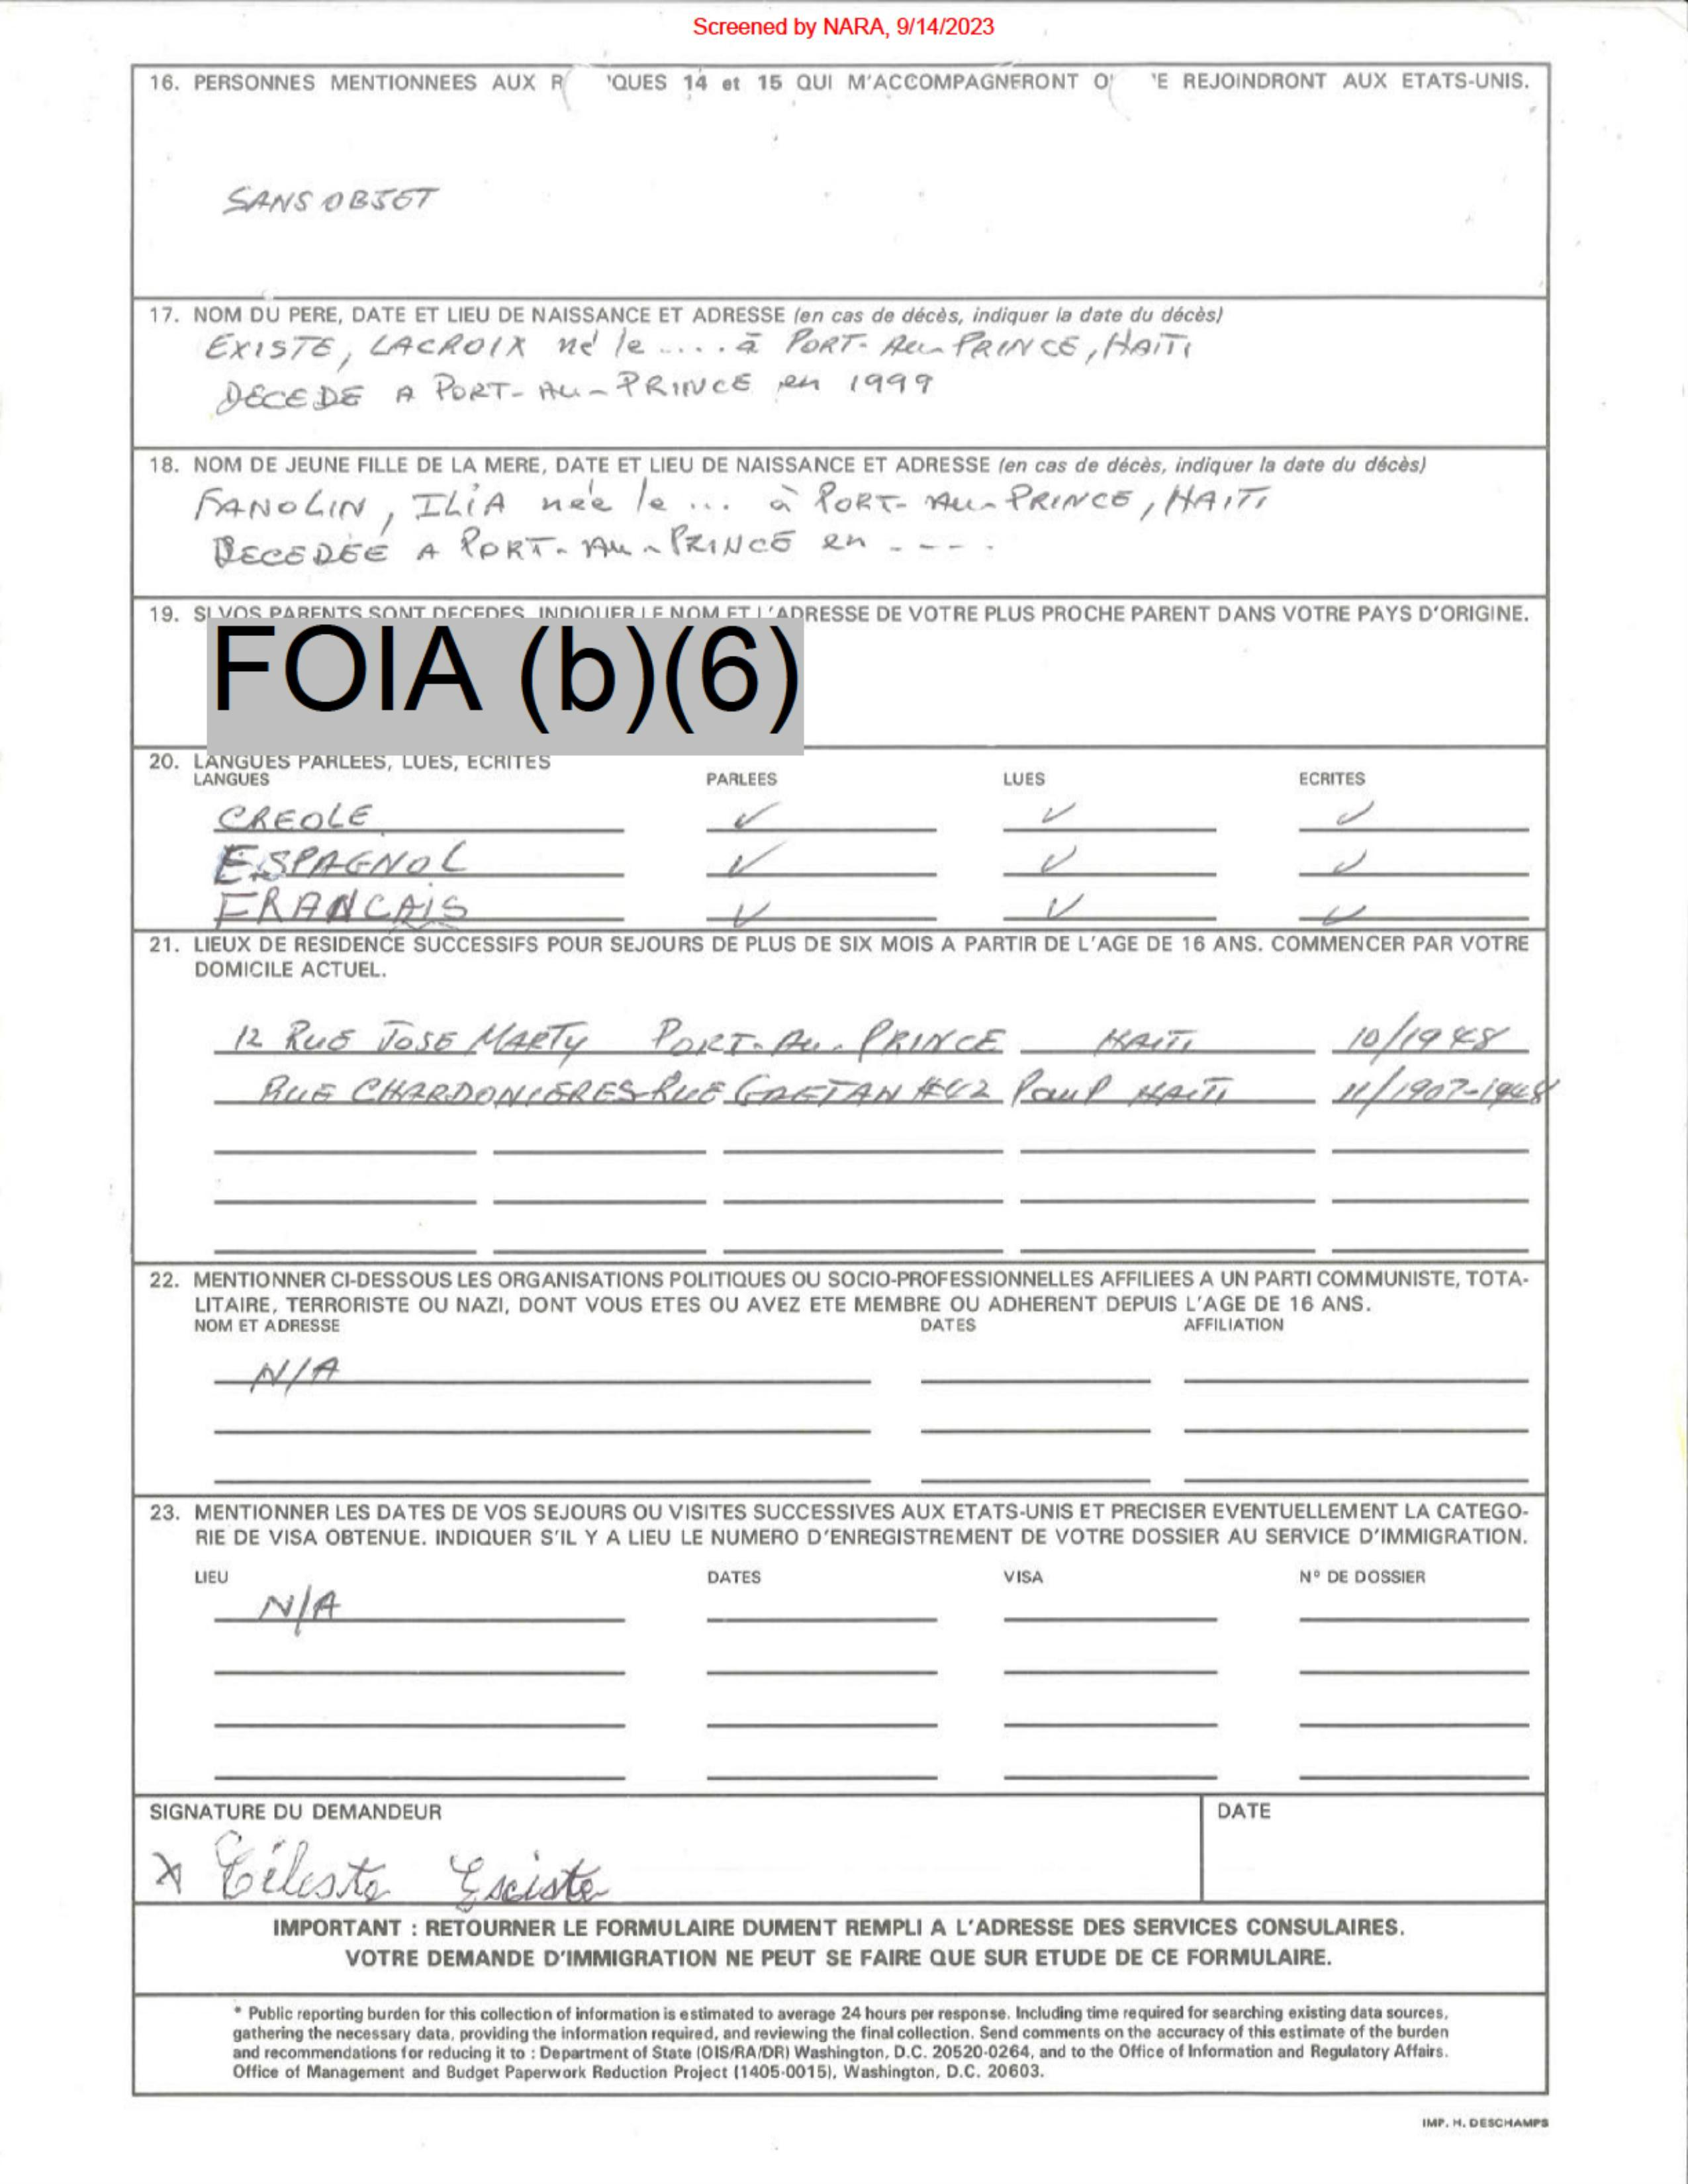 Screened by NARA, 9/14/2023
16. PERSONNES MENTIONNEES AUX R 'QUES 14 et 15 QUI M'ACCOMPAGNERONT O 'E REJOINDRONT AUX ETATS-UNIS.
SANS OBJET
17. NOM DU PERE, DATE ET LIEU DE NAISSANCE ET ADRESSE (en cas de décès, indiquer la date du décès)
EXISTE, LACROIX né le .... à PORT-AU-PRINCE, HAITI
DECEDE A PORT-AU-PRINCE en 1999
18. NOM DE JEUNE FILLE DE LA MERE, DATE ET LIEU DE NAISSANCE ET ADRESSE (en cas de décès, indiquer la date du décès)
FANOLIN, ILIA née le ... à PORT-AU-PRINCE, HAITI
DECEDÉE A PORT-AU-PRINCE en ----.
19. SI VOS PARENTS SONT DECEDES, INDIQUER LE NOM ET L'ADRESSE DE VOTRE PLUS PROCHE PARENT DANS VOTRE PAYS D'ORIGINE.
FOIA (b)(6)
20. LANGUES PARLEES, LUES, ECRITES
LANGUES PARLEES LUES ECRITES
CREOLE ✓ ✓ ✓
ESPAGNOL ✓ ✓ ✓
FRANCAIS ✓ ✓ ✓
21. LIEUX DE RESIDENCE SUCCESSIFS POUR SEJOURS DE PLUS DE SIX MOIS A PARTIR DE L'AGE DE 16 ANS. COMMENCER PAR VOTRE
DOMICILE ACTUEL.
12 RUE JOSE MARTY PORT-AU-PRINCE HAITI 10/1948
RUE CHARDONIERES-RUE GAETAN #42 PauP HAITI 11/1907-1948
22. MENTIONNER CI-DESSOUS LES ORGANISATIONS POLITIQUES OU SOCIO-PROFESSIONNELLES AFFILIEES A UN PARTI COMMUNISTE, TOTA-
LITAIRE, TERRORISTE OU NAZI, DONT VOUS ETES OU AVEZ ETE MEMBRE OU ADHERENT DEPUIS L'AGE DE 16 ANS.
NOM ET ADRESSE DATES AFFILIATION
N/A
23. MENTIONNER LES DATES DE VOS SEJOURS OU VISITES SUCCESSIVES AUX ETATS-UNIS ET PRECISER EVENTUELLEMENT LA CATEGO-
RIE DE VISA OBTENUE. INDIQUER S'IL Y A LIEU LE NUMERO D'ENREGISTREMENT DE VOTRE DOSSIER AU SERVICE D'IMMIGRATION.
LIEU DATES VISA Nº DE DOSSIER
N/A
SIGNATURE DU DEMANDEUR DATE
x Céleste Existe
IMPORTANT : RETOURNER LE FORMULAIRE DUMENT REMPLI A L'ADRESSE DES SERVICES CONSULAIRES.
VOTRE DEMANDE D'IMMIGRATION NE PEUT SE FAIRE QUE SUR ETUDE DE CE FORMULAIRE.
* Public reporting burden for this collection of information is estimated to average 24 hours per response. Including time required for searching existing data sources,
gathering the necessary data, providing the information required, and reviewing the final collection. Send comments on the accuracy of this estimate of the burden
and recommendations for reducing it to : Department of State (OIS/RA/DR) Washington, D.C. 20520-0264, and to the Office of Information and Regulatory Affairs.
Office of Management and Budget Paperwork Reduction Project (1405-0015), Washington, D.C. 20603.
IMP. H. DESCHAMPS